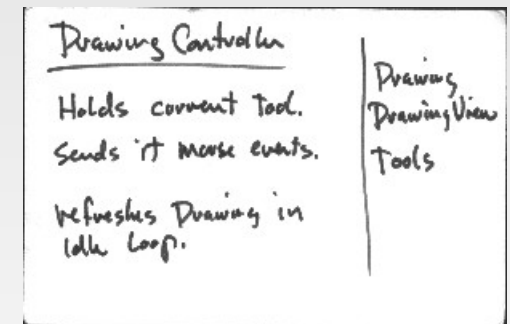 Drawing Controller
Holds current Tool.
Sends it mouse events.
refreshes Drawing in
idle loop.
Drawing
DrawingView
Tools